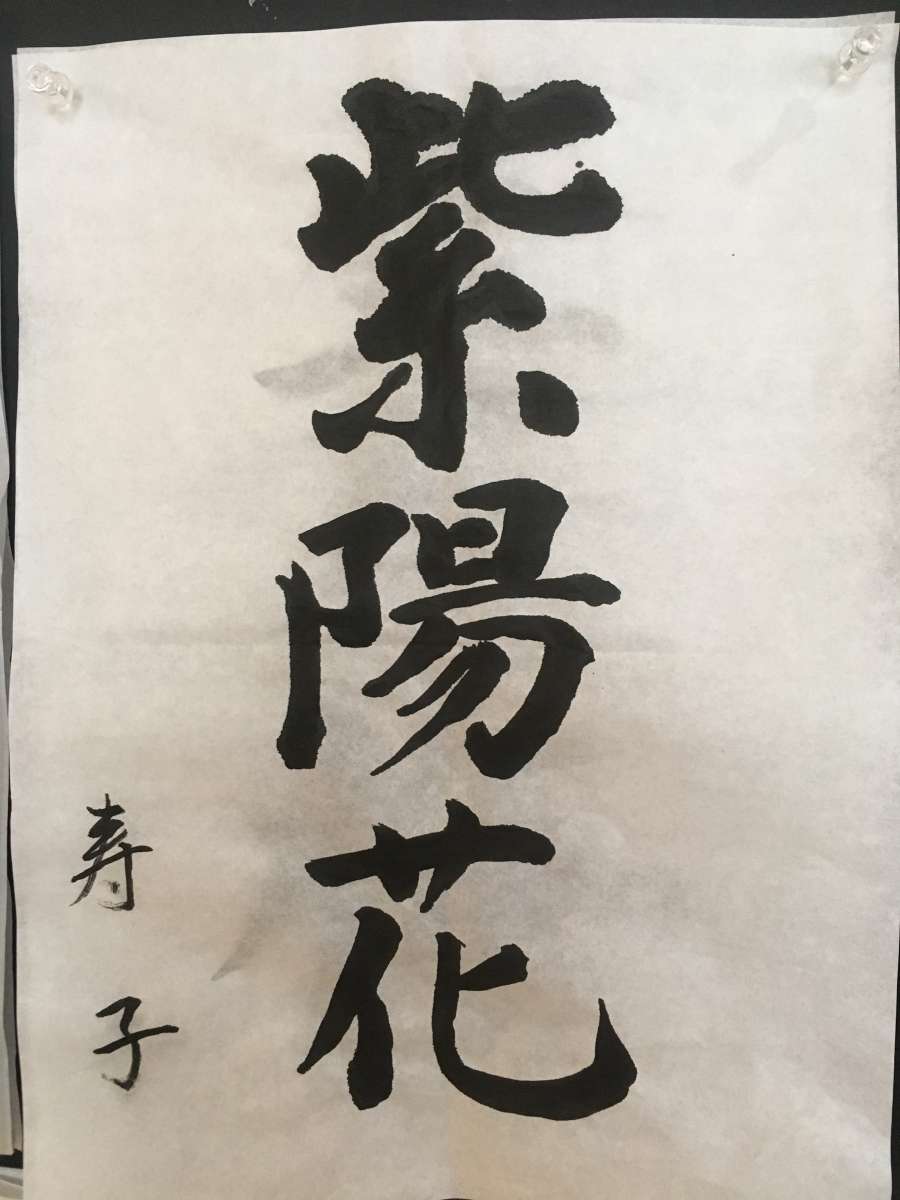 紫陽花
寿子